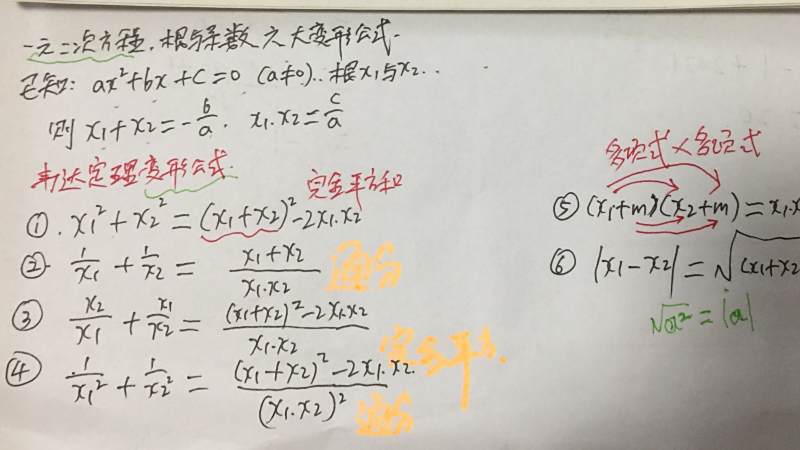 一元二次方程.根与系数六大变形公式.
已知: ax²+bx+c=0 (a≠0)..根x₁与x₂..
则 x₁+x₂=-b/a. x₁.x₂=c/a
韦达定理变形公式.
完全平方和
①. x₁²+x₂²=(x₁+x₂)²-2x₁.x₂
②. 1/x₁+1/x₂=(x₁+x₂)/(x₁.x₂) 通分
③ x₂/x₁+x₁/x₂=((x₁+x₂)²-2x₁x₂)/(x₁.x₂)
④ 1/x₁²+1/x₂²=((x₁+x₂)²-2x₁.x₂.)/(x₁.x₂)² 完全平方.
通分
多项式×多项式
⑤ (x₁+m)(x₂+m)=x₁.x
⑥ |x₁-x₂|=√(x₁+x₂
√a²=|a|